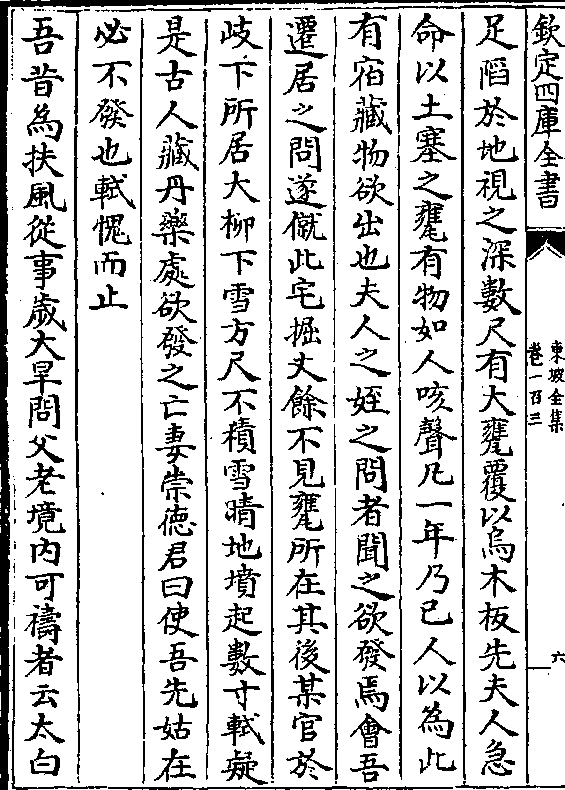 欽定四庫全書
東坡全集
卷一百三
六
足䧟於地視之深數尺有大甕覆以烏木板先夫人急
命以土塞之甕有物如人咳聲凡一年乃已人以為此
有宿藏物欲出也夫人之姪之問者聞之欲發焉會吾
遷居之問遂僦此宅掘丈餘不見甕所在其後某官於
岐下所居大柳下雪方尺不積雪晴地墳起數寸軾疑
是古人藏丹藥處欲發之亡妻崇徳君曰使吾先姑在
必不發也軾愧而止
吾昔為扶風從事歲大旱問父老境内可禱者云太白